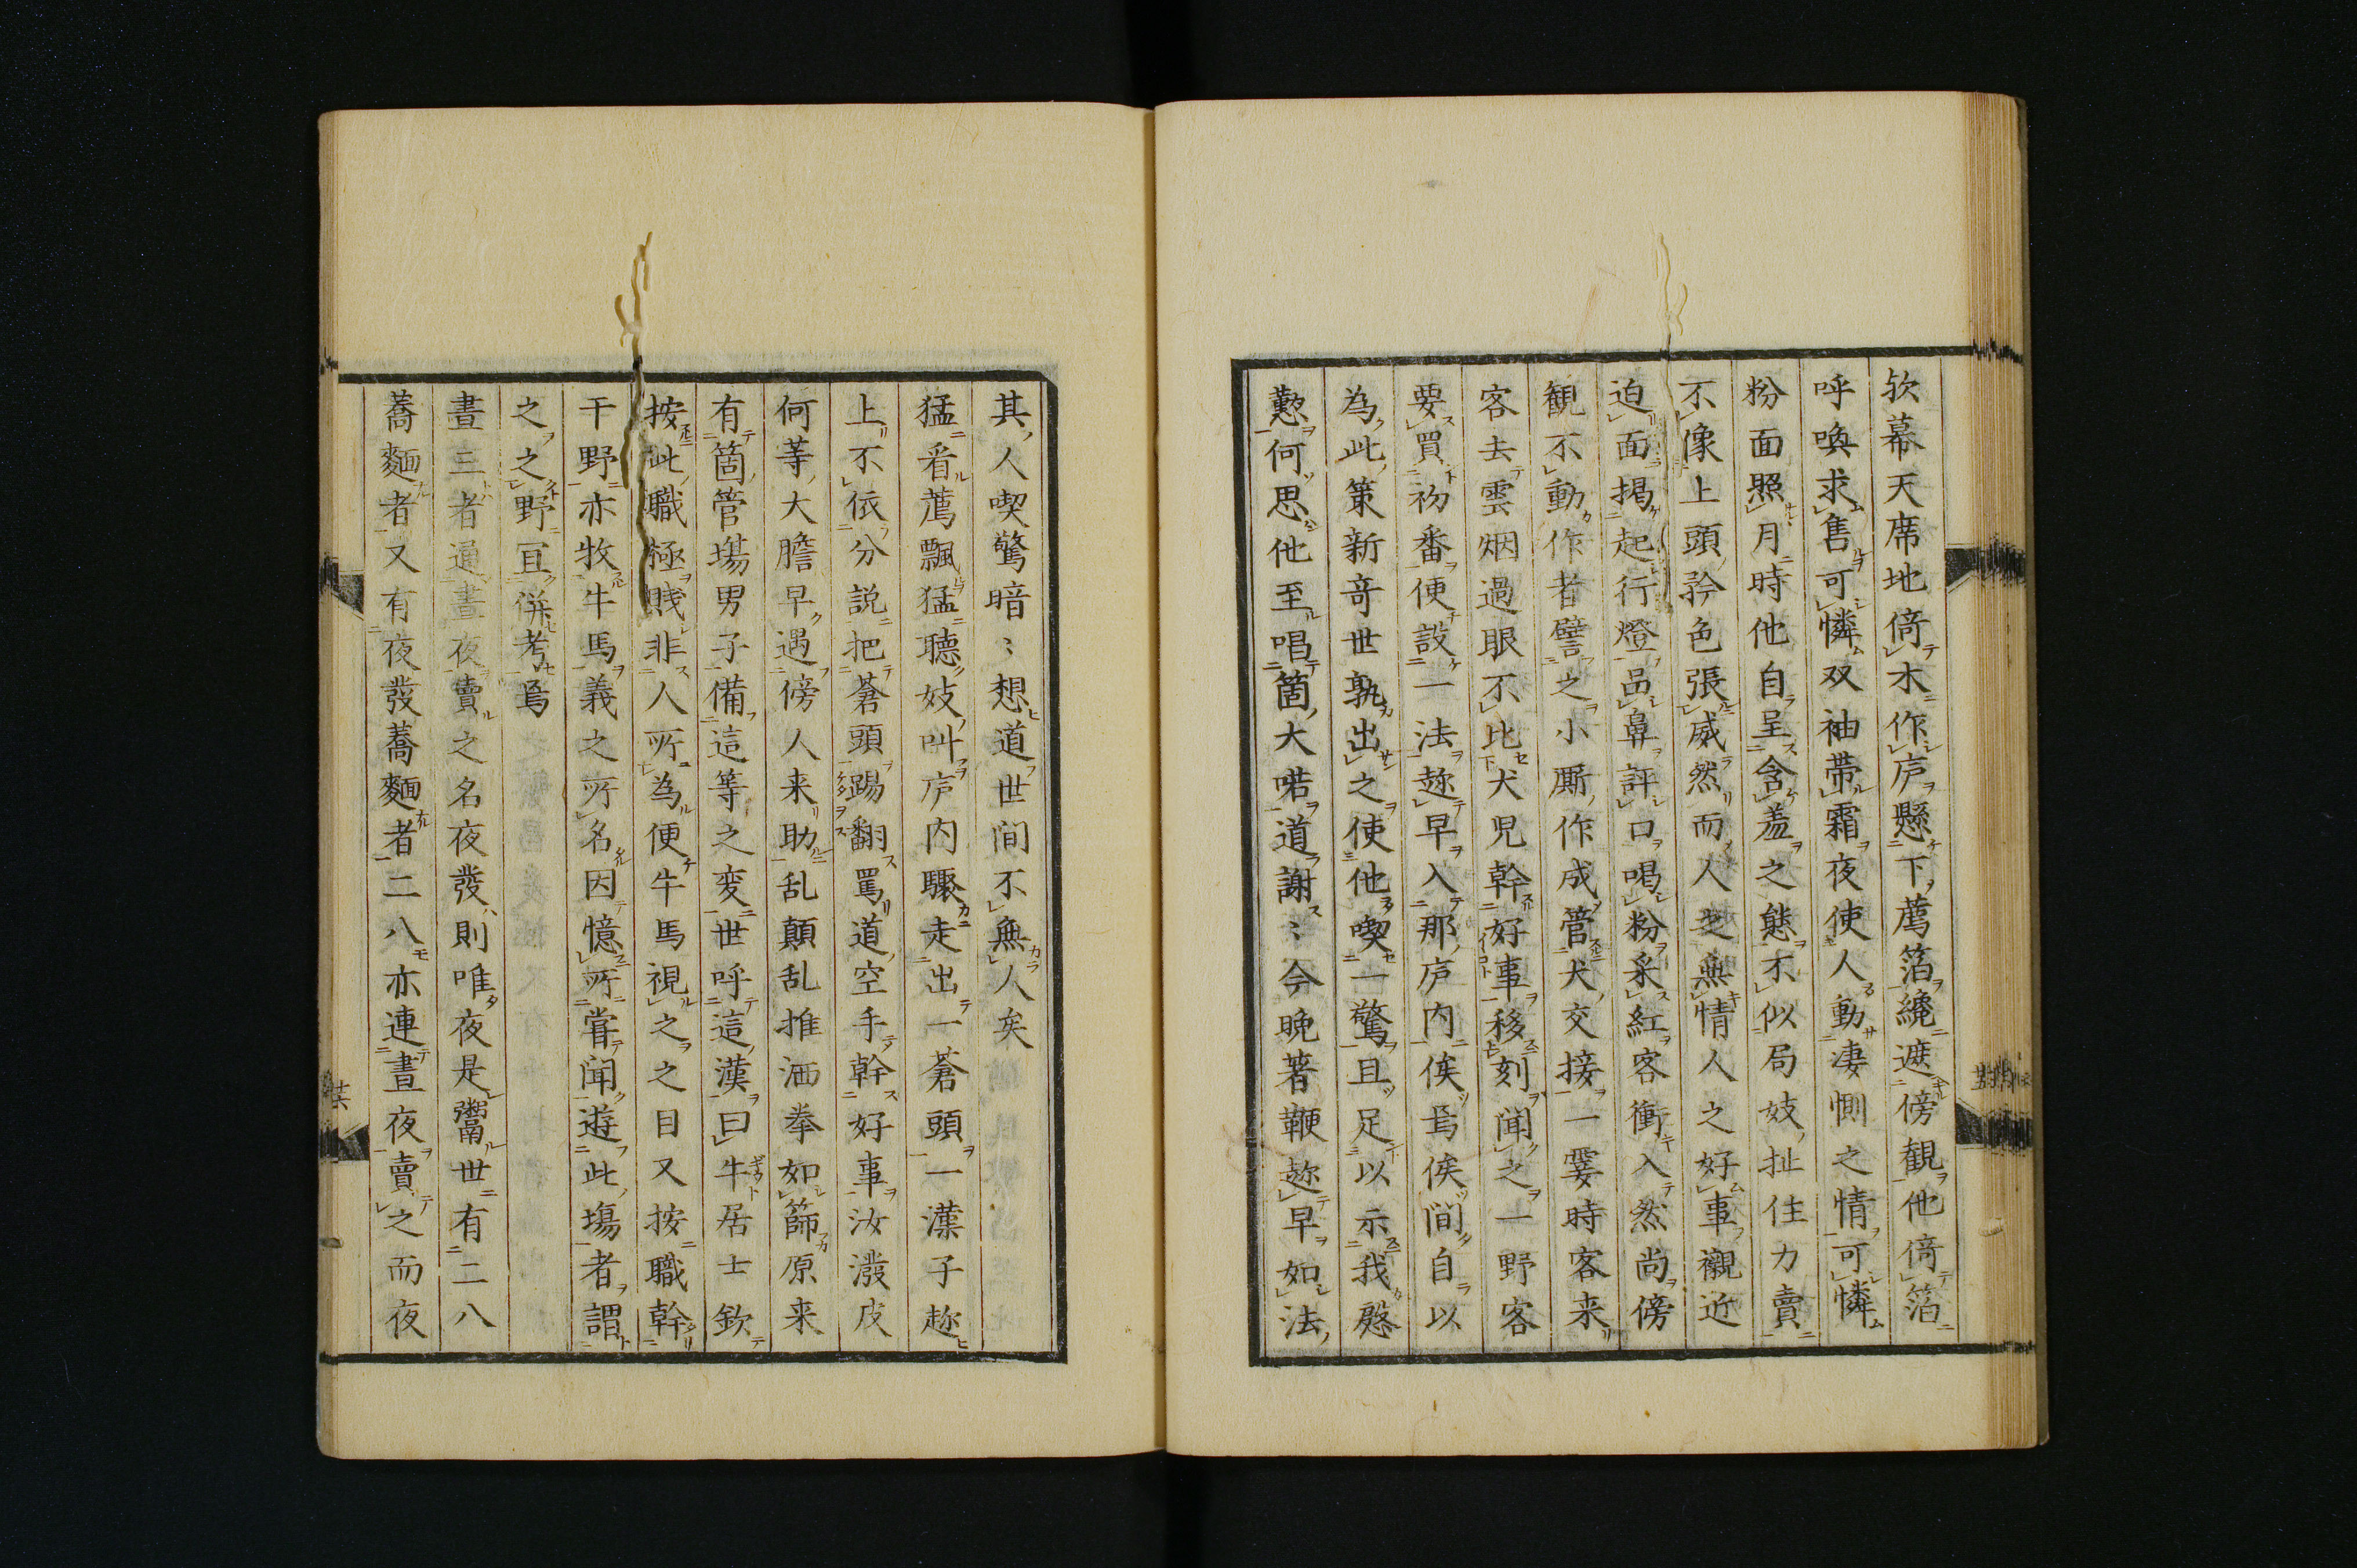 欤幕天席地倚木作庐懸下薦箔纔遮傍観他倚箔
呼喚求售可憐双袖帯霜夜使人動凄惻之情可憐
粉面照月時他自呈含羞之態不似局妓扯住力賣
不像上頭矜色張威然而人之無情人之好事襯近
迫面掲起行燈品鼻評口喝粉采紅客衝入然尚傍
観不動作者譬之小厮作成管犬交接一霎時客来
客去雲烟過眼不比犬児幹好事移刻聞之一野客
要買初番便設一法趂早入那庐内俟焉俟間自以
為此策新竒世孰出之使他喫一驚且足以示我慇
懃何思他至唱箇大喏道謝〻今晩著鞭趂早如法
其人喫驚暗〻想道世间不無人矣
猛看薦飄猛聴妓叫庐内驟走出一蒼頭一漢子趂
上不依分説把蒼頭踢翻罵道空手幹好事汝潑皮
何等大膽早遇傍人来助乱顛乱推洒拳如篩原来
有箇管塲男子備這等之変世呼這漢曰牛居士欽
按此職極賎非人所為便牛馬視之之目又按職幹
干野亦牧牛馬義之所名因憶所甞聞遊此塲者謂
之之野冝併考焉
晝三者通晝夜賣之名夜發則唯夜是鬻世有二八
蕎麵者又有夜發蕎麵者二八亦連晝夜賣之而夜